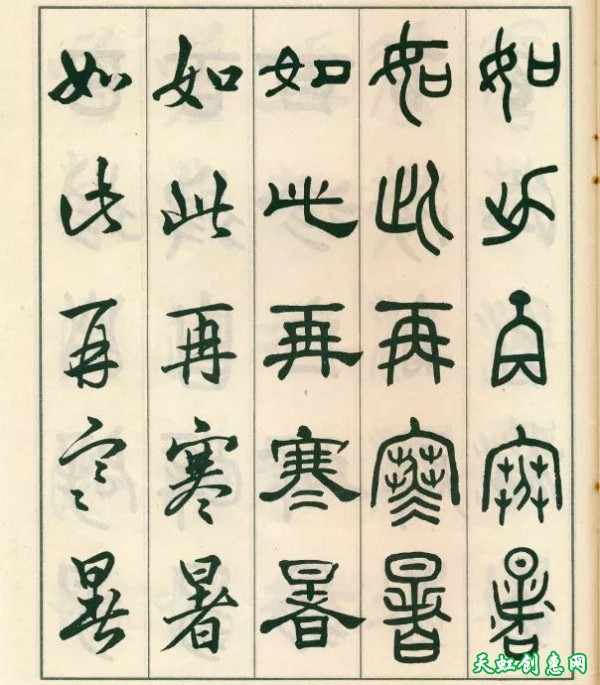 如此再寒暑
如此再寒暑
如此再寒暑
如此再寒暑
如此再寒暑
天虹创惠网